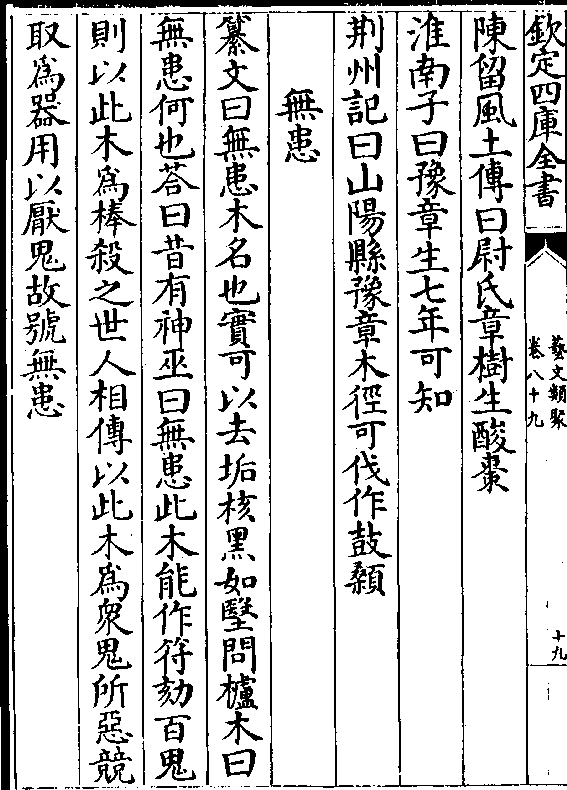 欽定四庫全書
藝文類聚
卷八十九
十九
陳留風土傳曰尉氏章樹生酸棗
淮南子曰豫章生七年可知
荆州記曰山陽縣豫章木徑可伐作鼓顙
無患
纂文曰無患木名也實可以去垢核黑如毉問櫨木曰
無患何也荅曰昔有神巫曰無患此木能作符劾百鬼
則以此木為棒殺之世人相傳以此木為衆鬼所惡競
取為器用以厭鬼故號無患